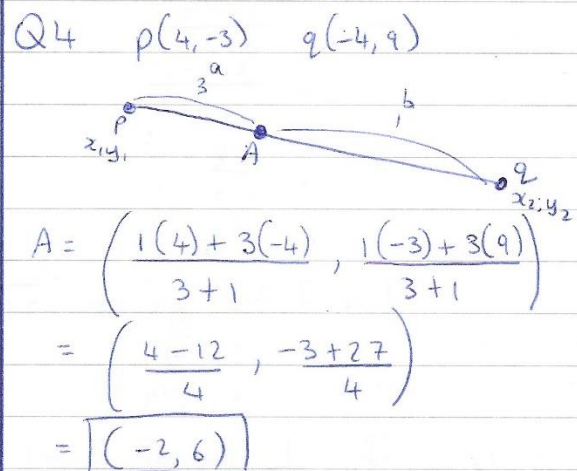 Q4 p(4,-3) q(-4,9)
3 a
1 b
p
x₁y₁
A
q
x₂,y₂
A = ( 1(4) + 3(-4) / 3+1 , 1(-3) + 3(9) / 3+1 )
= ( 4-12 / 4 , -3+27 / 4 )
= (-2, 6)